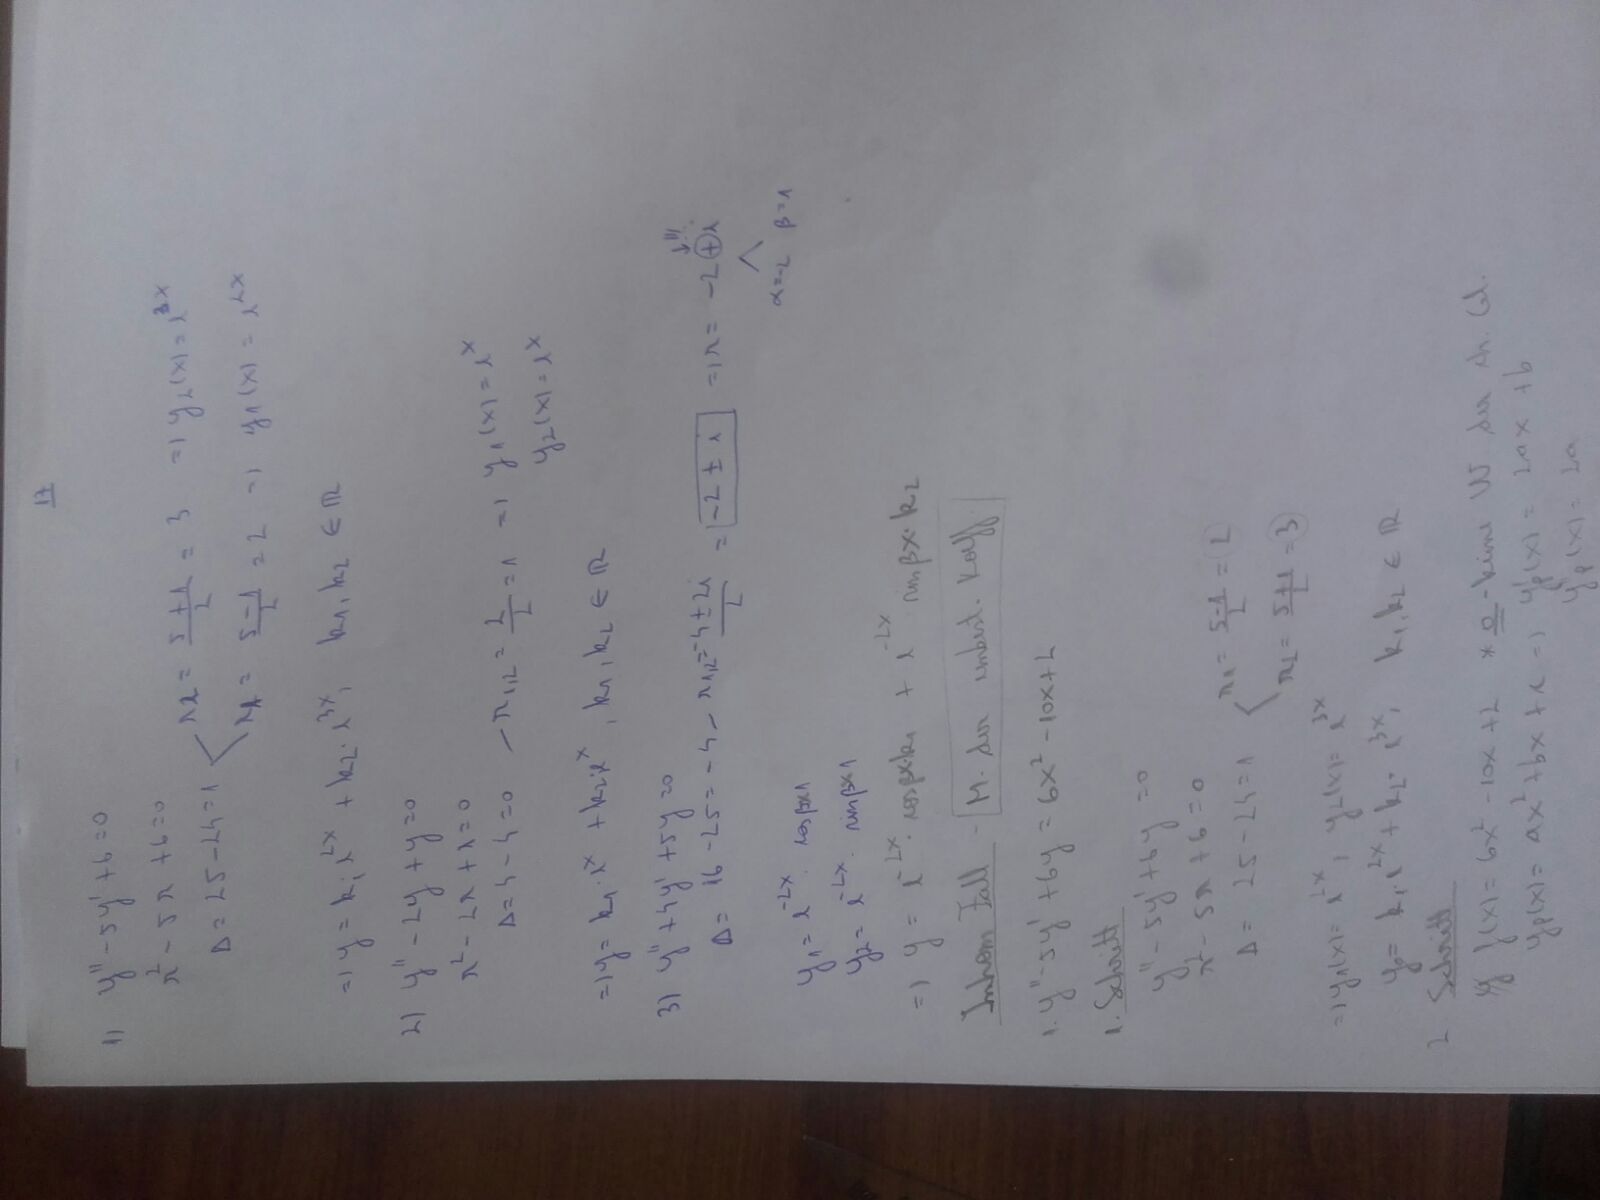 17
1) y'' - 5y' + 6 = 0
r² - 5r + 6 = 0
Δ = 25 - 24 = 1
r2 = (5+1)/2 = 3 => y2(x) = e^3x
r1 = (5-1)/2 = 2 => y1(x) = e^2x
=> y = k1 e^2x + k2 · e^3x, k1, k2 ∈ ℝ
2) y'' - 2y + y = 0
r² - 2r + 1 = 0
Δ = 4 - 4 = 0 — r1,2 = 2/2 = 1 => y1(x) = e^x
y2(x) = e^x
=> y = k1 · e^x + k2 · e^x, k1, k2 ∈ ℝ
3) y'' + 4y' + 5y = 0
↓ !!!
Δ = 16 - 25 = -4 — r1,2 = (-4 ± 2i)/2 = -2 ± i => r = -2 + i
α = -2 β = 1
y1 = e^-2x · cos βx1
y2 = e^-2x · sin βx1
=> y = e^-2x · cos βx · k1 + e^-2x sin βx · k2
Inhom Fall - M. der unbest. Koeff.
1. y'' - 5y' + 6y = 6x² - 10x + 2
1. Schritt
y'' - 5y' + 6y = 0
r² - 5r + 6 = 0
Δ = 25 - 24 = 1
r1 = (5-1)/2 = 2
r2 = (5+1)/2 = 3
=> y1(x) = e^2x, y2(x) = e^3x
y0 = k1 · e^2x + k2 · e^3x, k1, k2 ∈ ℝ
2 Schritt
f(x) = 6x² - 10x + 2 * 0 - keine W der ch. Gl.
yp(x) = ax² + bx + c => yp'(x) = 2ax + b
yp''(x) = 2a